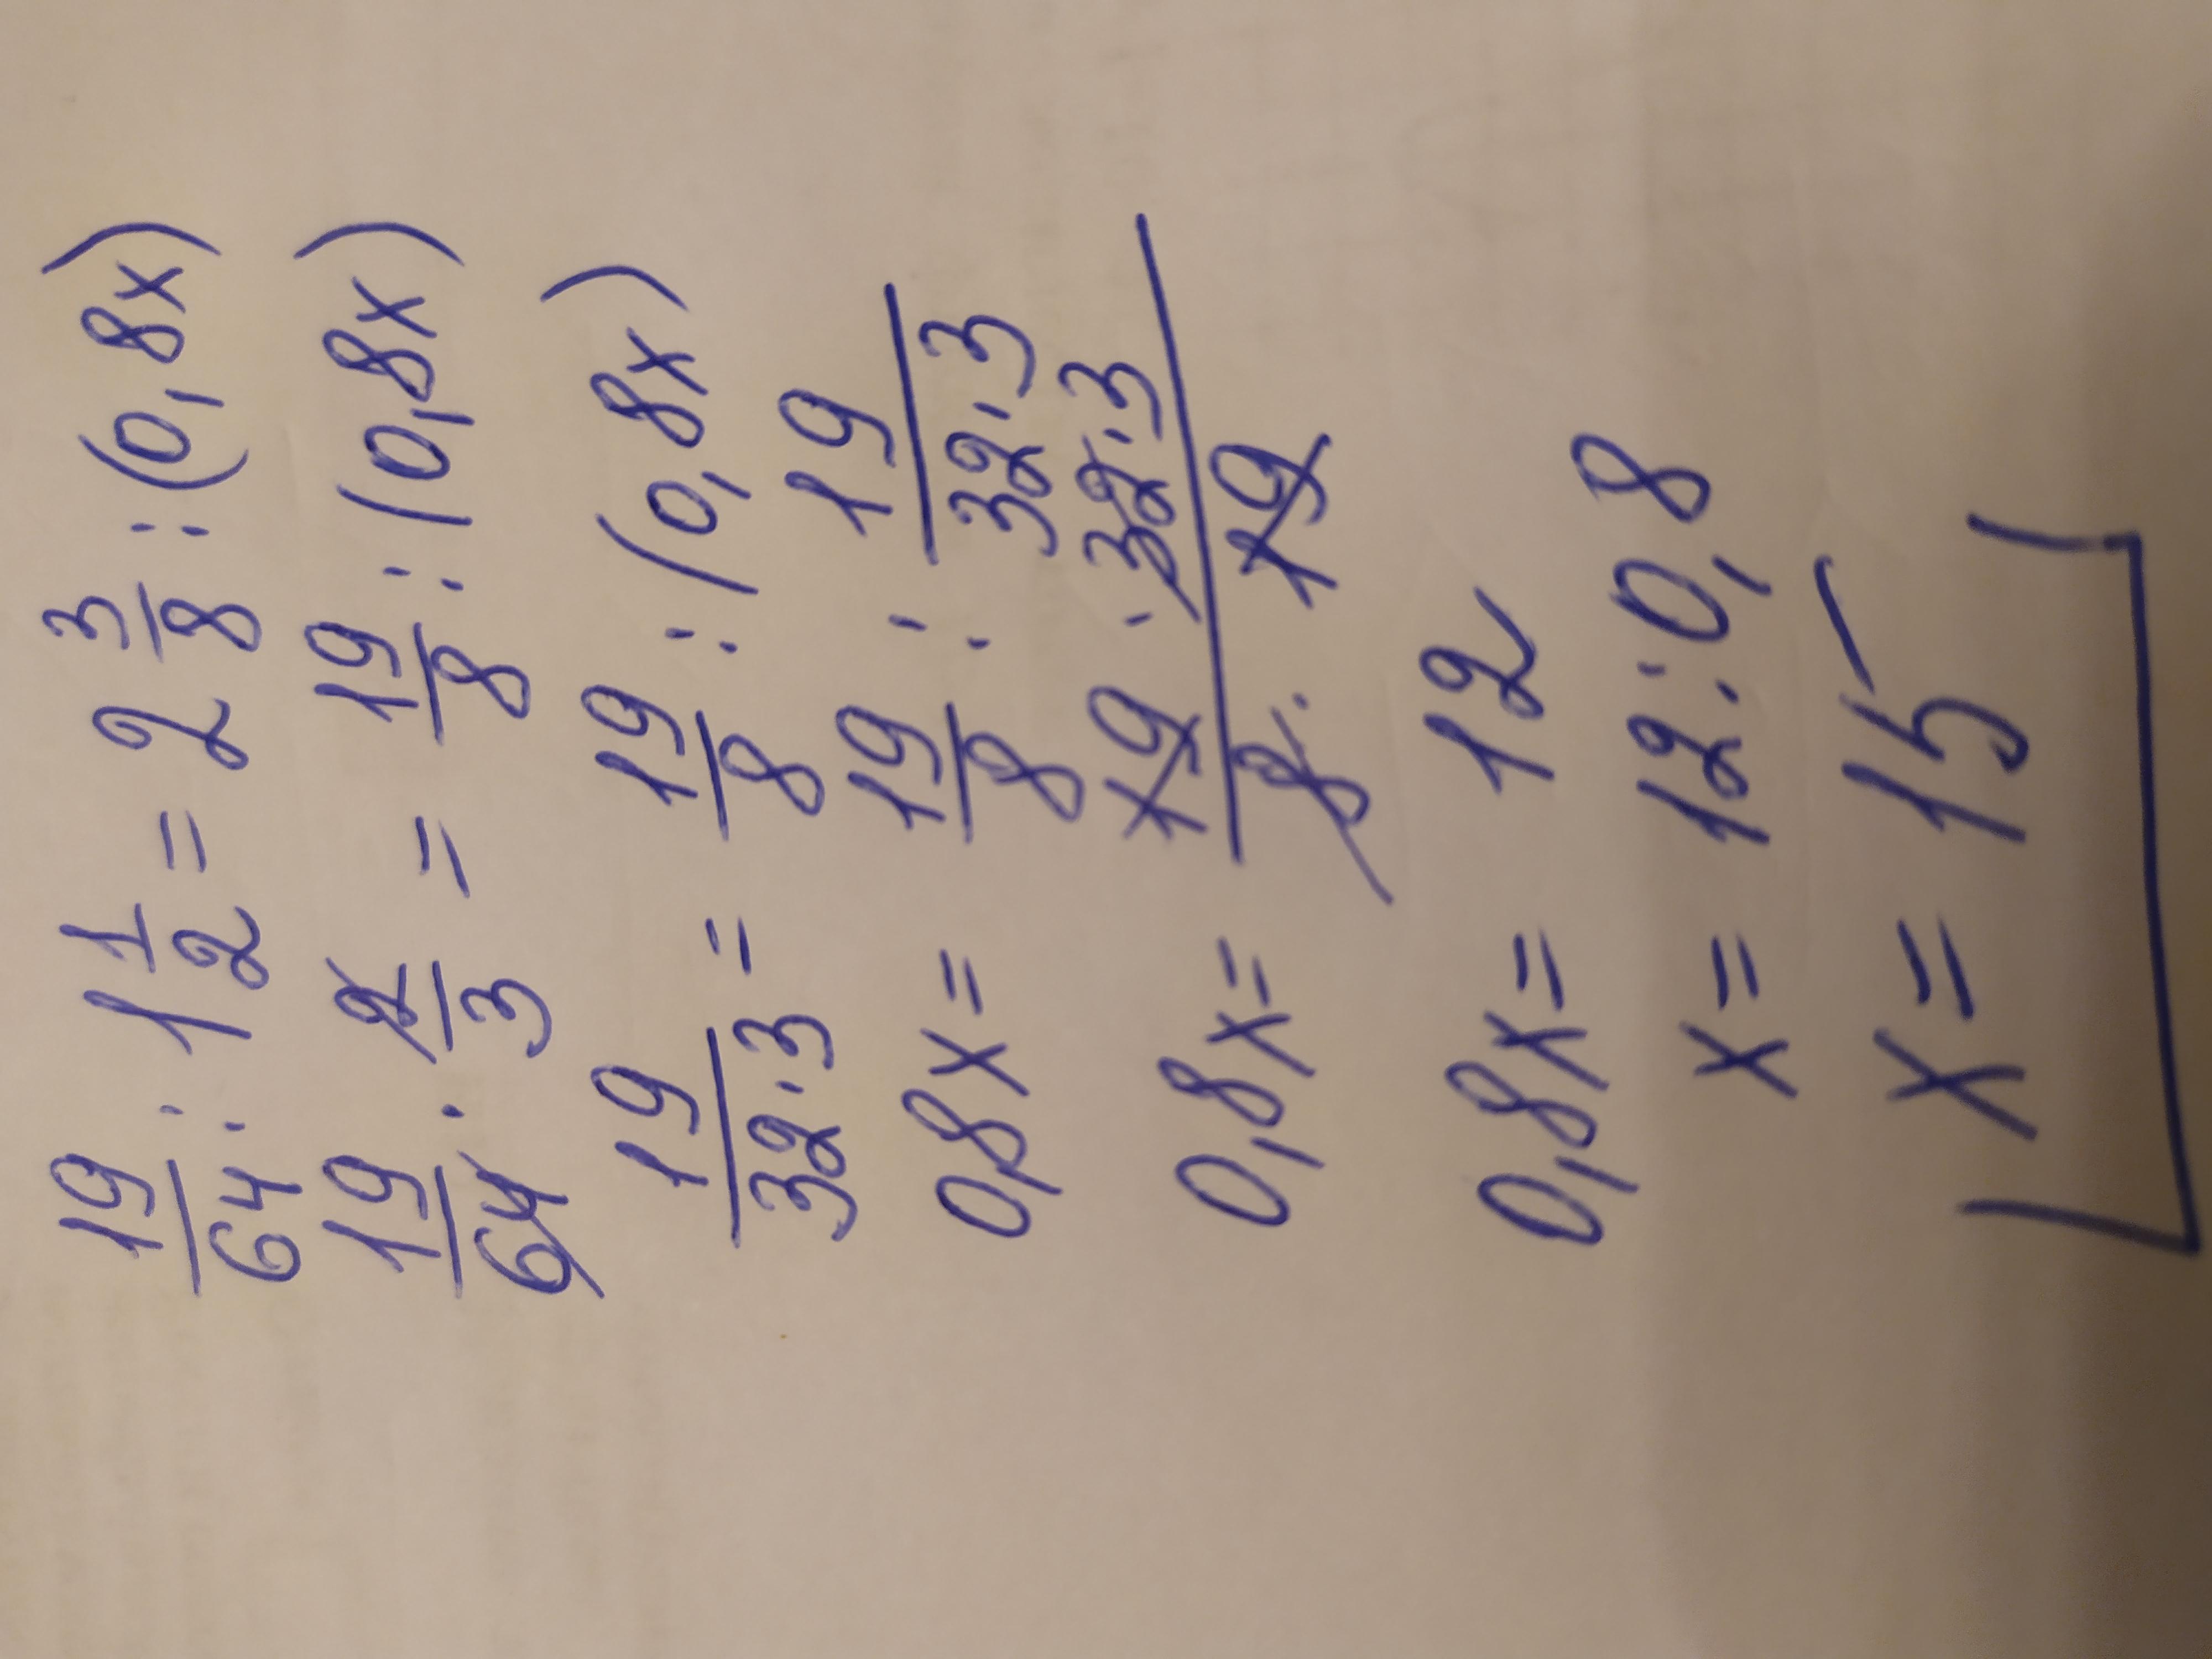 19/64 : 1 1/2 = 2 3/8 : (0,8x)
19/64 · 2/3 = 19/8 : (0,8x)
19/32·3 = 19/8 : (0,8x)
0,8x = 19/8 : 19/32·3
0,8x = 19·32·3/8·19
0,8x = 12
x = 12:0,8
x = 15